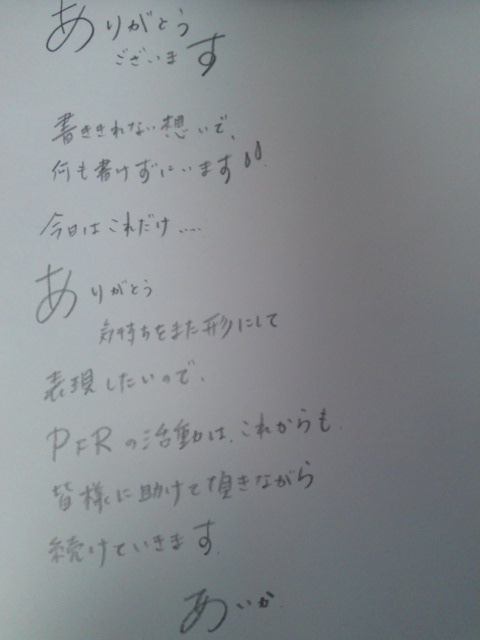 ありがとう
ございます
書ききれない想いで、
何も書けずにいます
今日はこれだけ....
ありがとう
気持ちをまた形にして
表現したいので、
PFRの活動は、これからも、
皆様に助けて頂きながら
続けていきます。
あいか